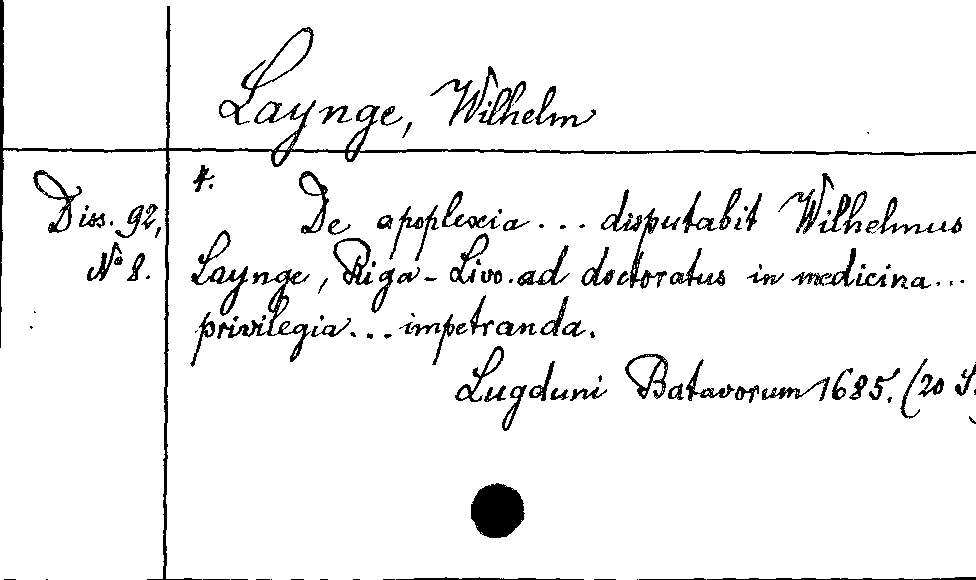 Laynge, Wilhelm
4.
Diss. 92, De apoplexia ... disputabit Wilhelmus
No 8. Laynge, Riga-Livo. ad doctoratus in medicina ...
privilegia ... impetranda.
Lugduni Batavorum 1685. (20 S.